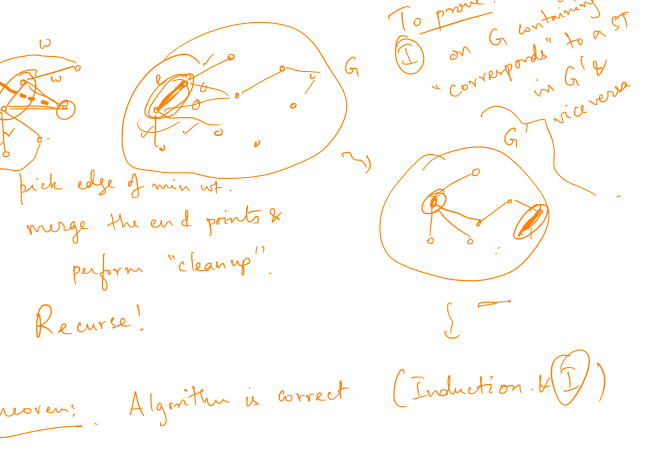 To prove:
I on G containing
"corresponds" to a ST
in G' &
vice versa
w
w
e
G
G'
pick edge of min wt.
merge the end points &
perform "cleanup".
Recurse!
heorem: Algorithm is correct (Induction & I)